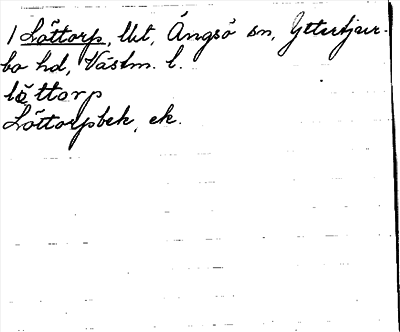 1 Löttorp, lht, Ängsö sn, Yttertjur-
bo hd, Västm. l.
löttorp
Löttorpbek, ek.